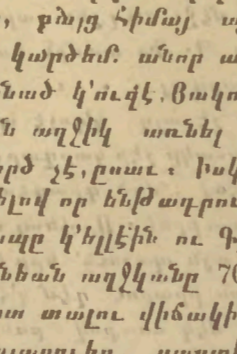 , բայց Հիմայ
կարծեմ. անոր
նած կ՚ուզէ, Յակո
ն աղջիկ առնել
րծ չէ, ըսաւ : Իսկ
ելով որ ենթադրու
ապը կ՚ելլէին ու Գ
նեան աղջկանը 70
ատ տալու վիճակի